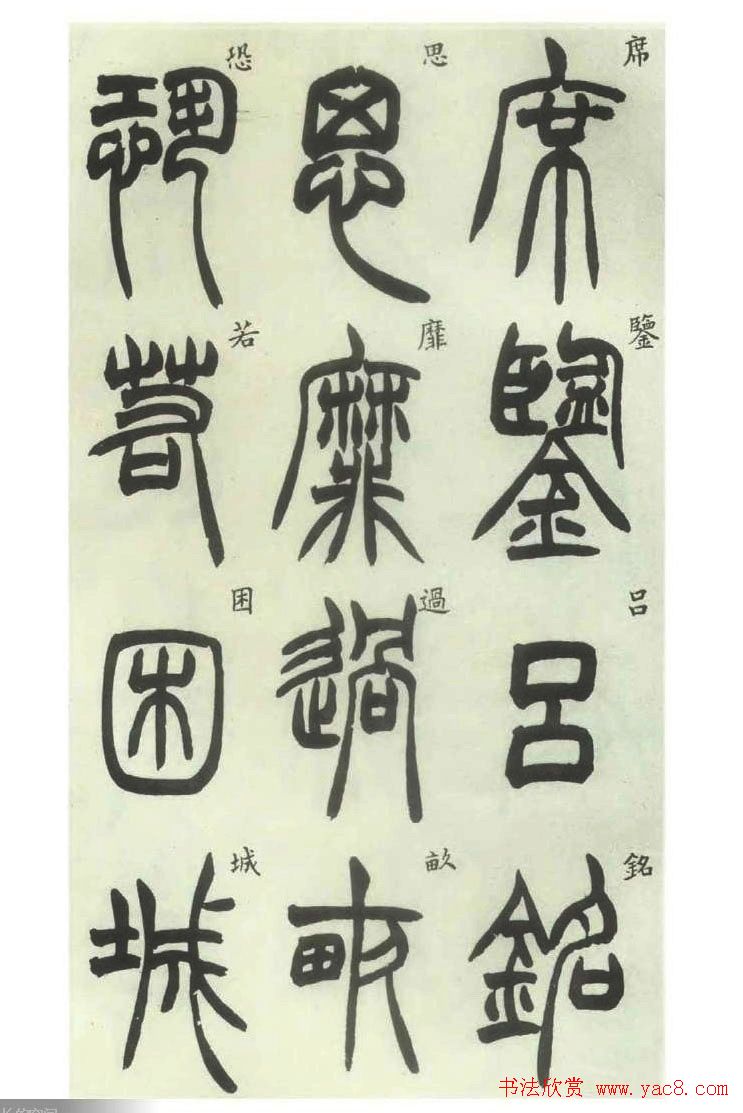 席鑒呂銘
思靡過畝
恐若困城
书法欣赏 www.yac8.com